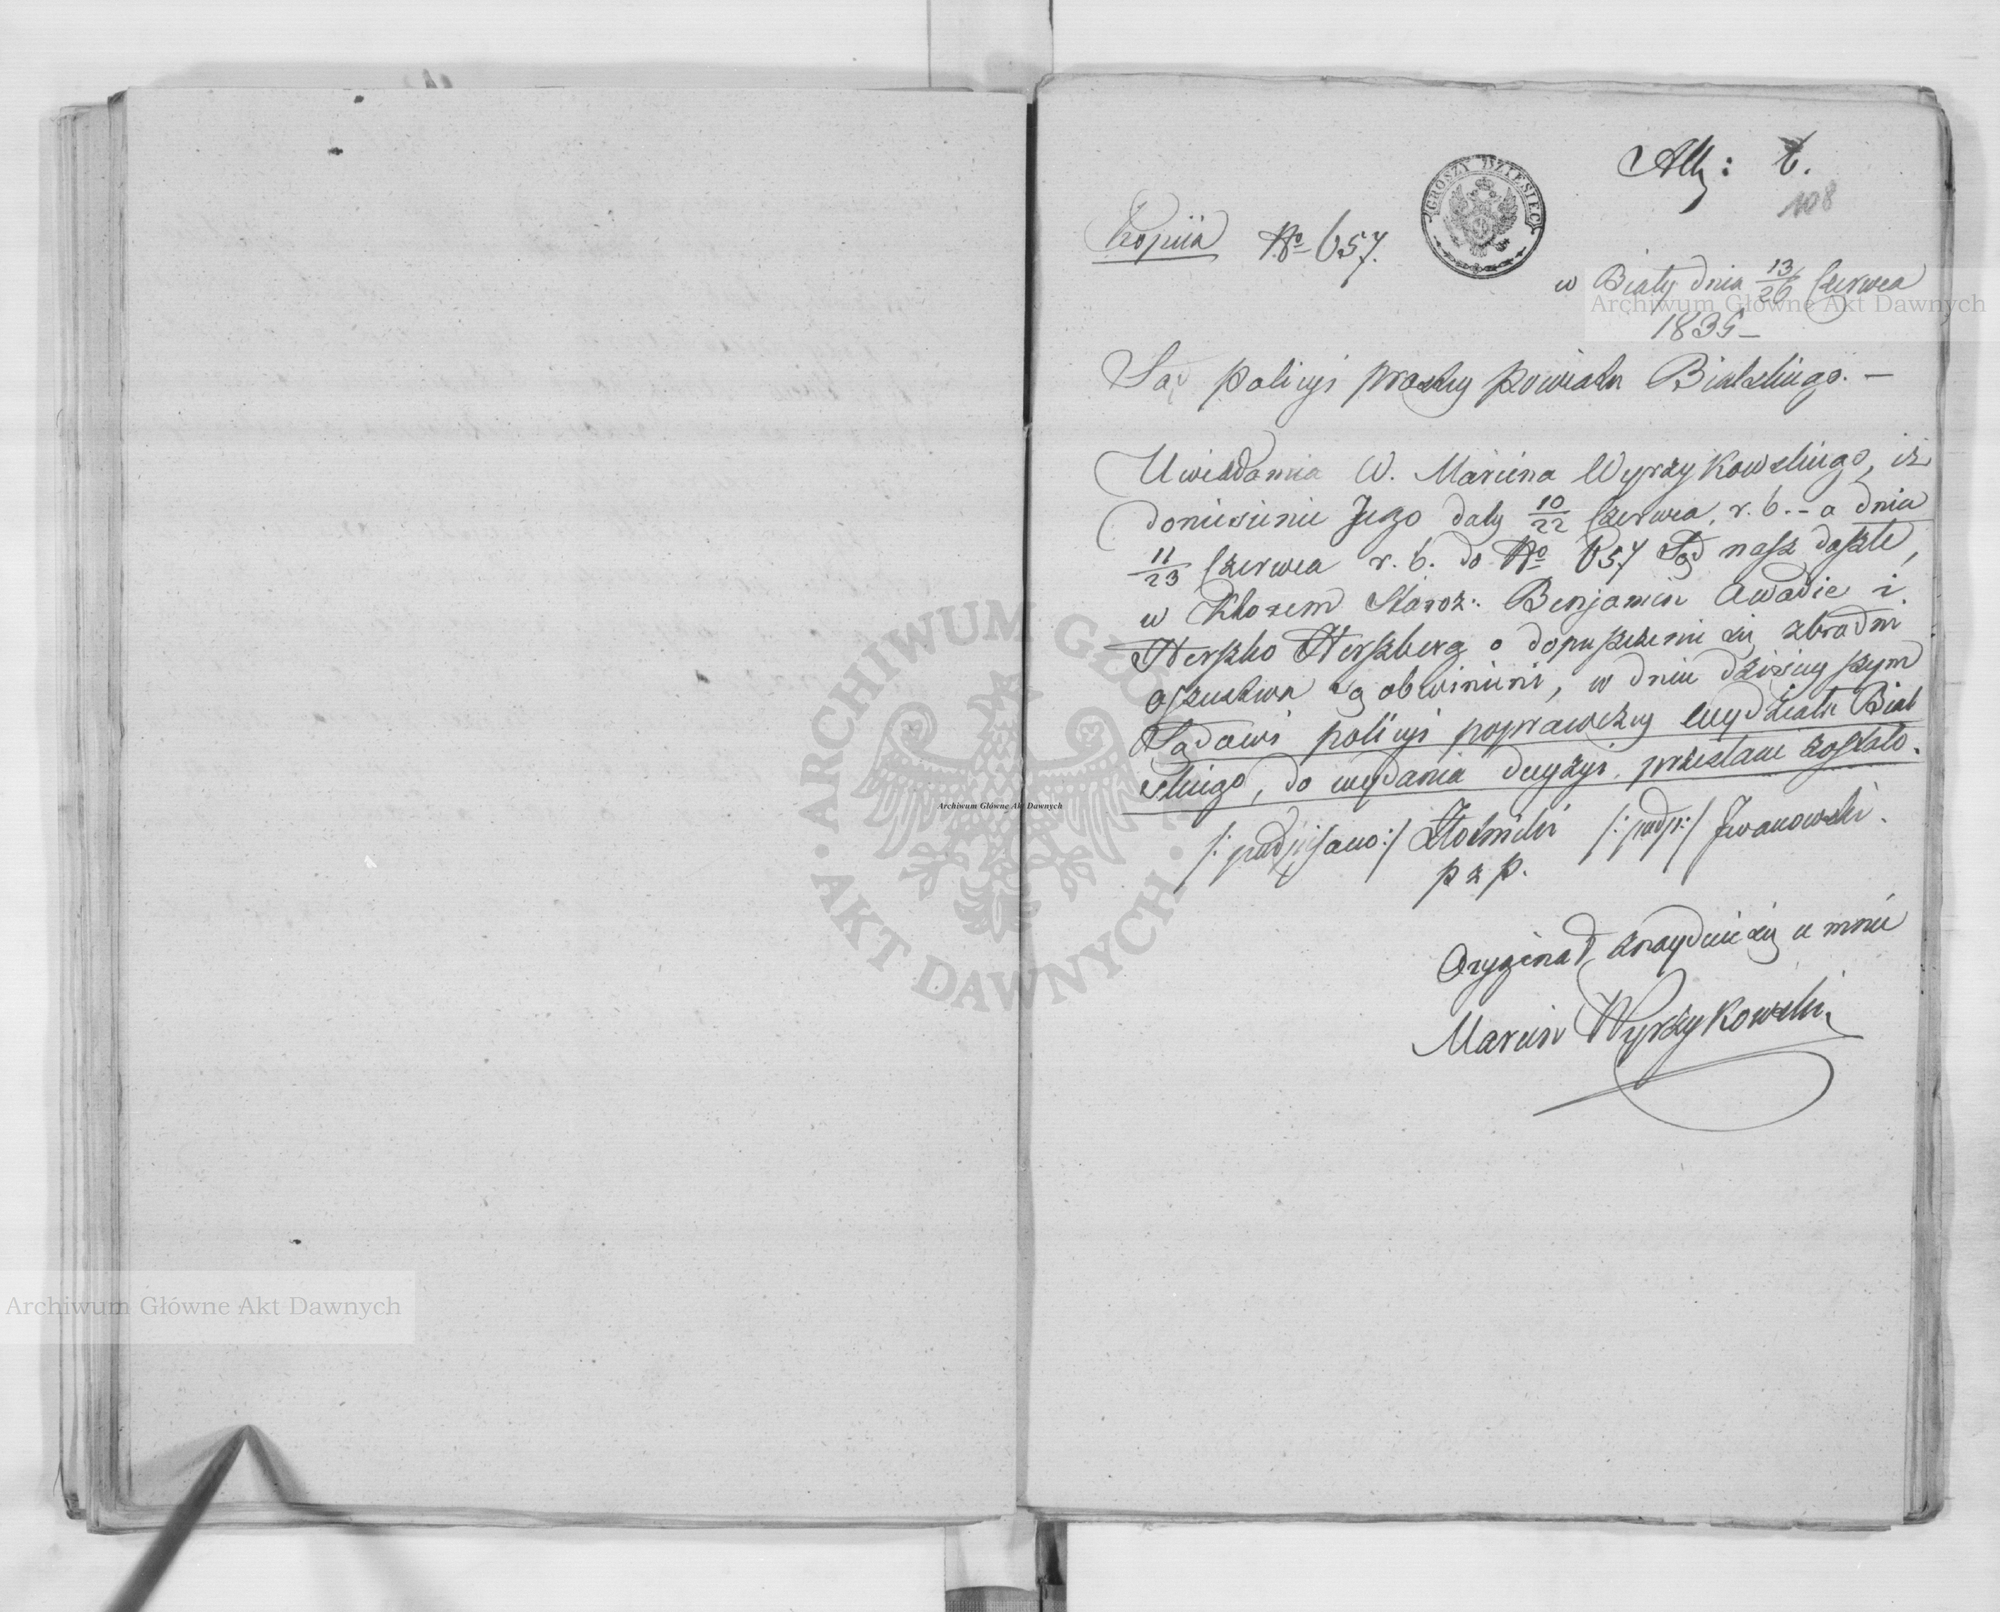 All: 6.
108
GROSZY DZIESIĘĆ
Kopiia № 657.
w Biały dnia 13/26 Czerwca
1835 –
Sąd policyi prostey powiatu Bialskiego. –
Uwiadamia W. Marcina Wyrzykowskiego, iż
doniesienie Jego daty 10/22 Czerwca. r. b. – a dnia
11/23 Czerwca r. b. do № 657 Sąd nasz doszłe,
w którem Staroz: Benjamin Awadie i
Herszko Herszberg o dopuszczenie się zbrodni
oszustwa są obwinieni, w dniu dzisieyszym
Sądowi policyi poprawczey wydziału Bial
skiego, do wydania decyzyi, przesłane zostało.
/: podpisano :/ /: podp: / Iwanowski.
p z p.
Oryginał znayduie się u mnie
Marcin Wyrzykowski
Archiwum Główne Akt Dawnych
Archiwum Główne Akt Dawnych
Archiwum Główne Akt Dawnych
ARCHIWUM GŁÓWNE AKT DAWNYCH